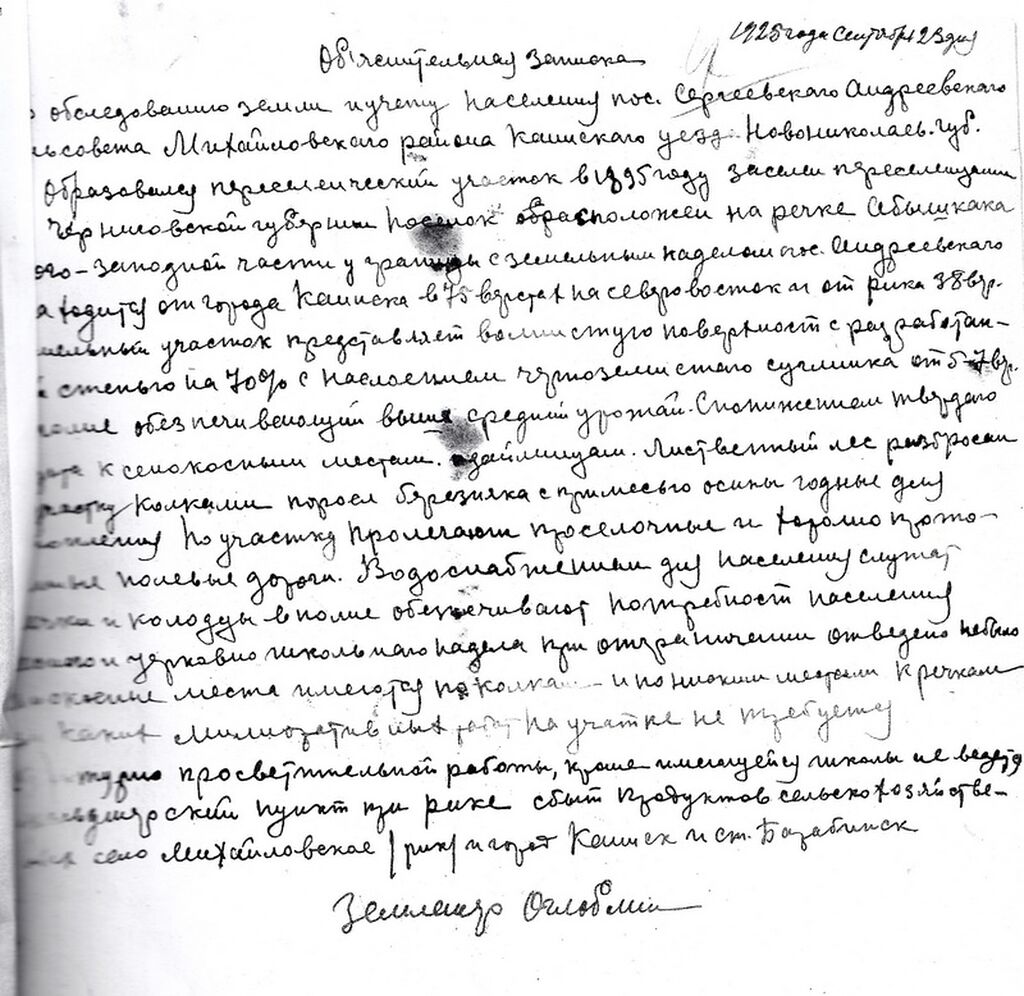 1925 года Сентября 23 дня
Объяснительная записка
обследованию земли и учету населения пос. Сергеевскаго Андреевскаго
льсовета Михайловскаго района Каинскаго уезд. Новониколаев. губ.
Образовался переселенческий участок в 1895 году заселен переселенцами
Черниговской губернии Поселок расположен на речке Абышкака
го-западной части у границы с земельным наделом пос. Андреевскаго
ходится от города Каинска в 75 верстах на северовосток и от рика 38 вер.
мельный участок представляет волнистую поверхност с разработан-
й степью на 70% с наслоением черноземистаго суглинка от 5-7 вер.
обезпечивающий выше средний урожай. С понижением твердаго
к сенокосным местам. займищам. Лиственный лес разбросан
участку колками поросл березняка с примесью осины годные для
топления По участку пролегают проселочные и хорошо прото-
полевые дороги. Водоснабжением для населения служат
речка и колодцы вполне обезпечивают потребност населения
и церковно школьнаго надела при отграничении отведено небыло
сенокосные места имеются по колкам и по низким местам к речкам
каких мелиоративных работ на участке не требуется
просветительной работы, кроме имеющейся школы не ведется
льдшерский пункт при рике сбыт продуктов сельскохозяйстве-
село Михайловское /рик/ и город Каинск и ст. Барабинск
Землемер Оглоблин